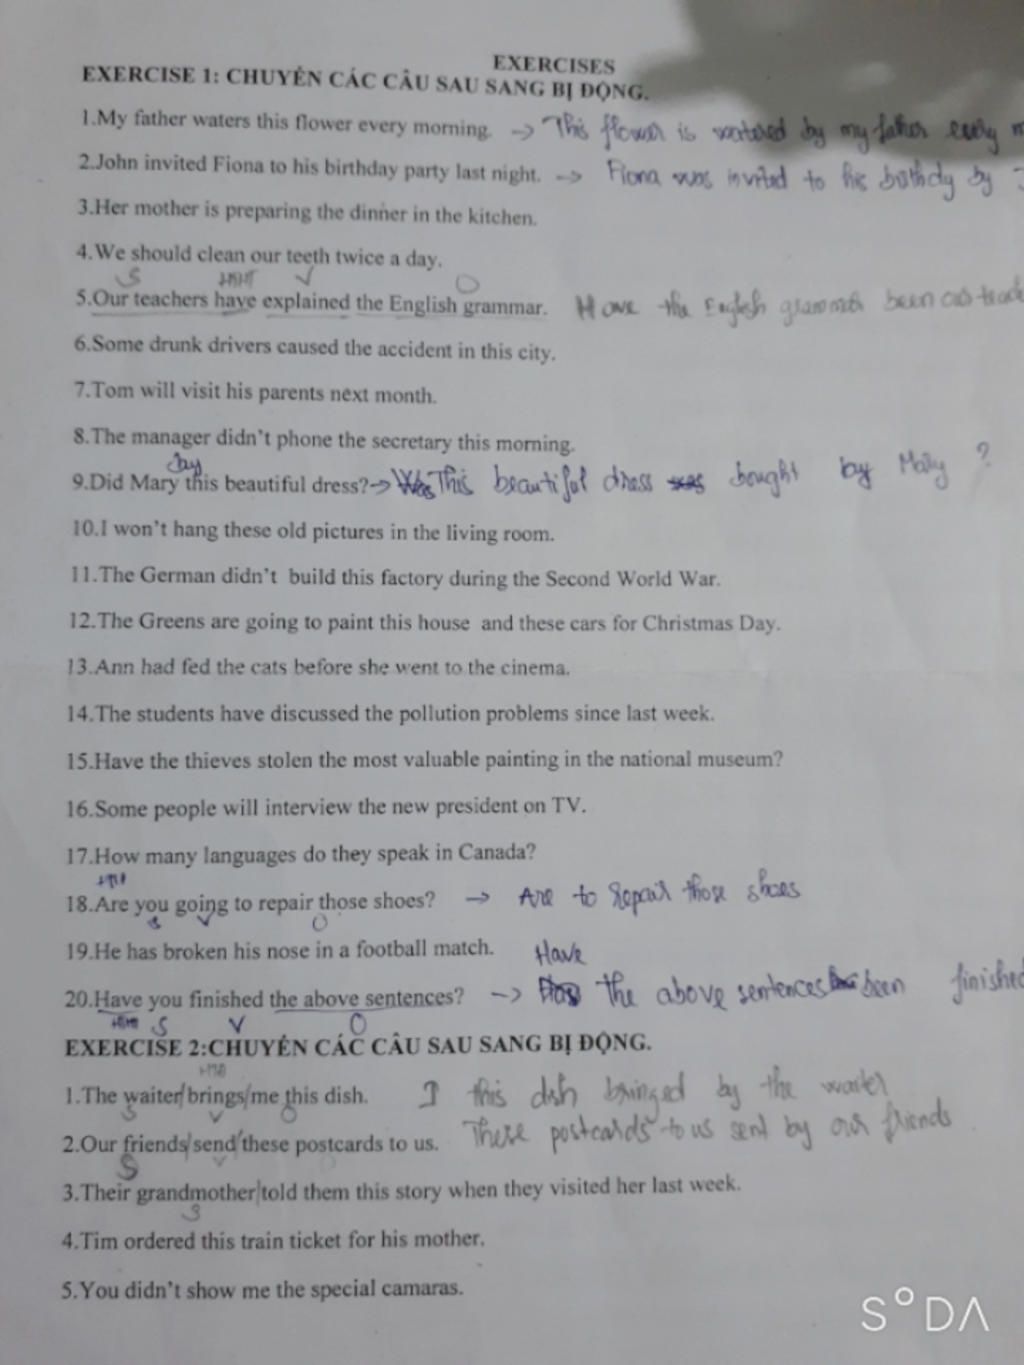 EXERCISES
EXERCISE 1: CHUYỂN CÁC CÂU SAU SANG BỊ ĐỘNG.
1.My father waters this flower every morning. → This flower is watered by my father every m
2.John invited Fiona to his birthday party last night. → Fiona was invited to his birthdy by J
3.Her mother is preparing the dinner in the kitchen.
4.We should clean our teeth twice a day.
S HTHT V O
5.Our teachers have explained the English grammar. Have the English grammar been
6.Some drunk drivers caused the accident in this city.
7.Tom will visit his parents next month.
8.The manager didn't phone the secretary this morning.
buy
9.Did Mary this beautiful dress? → This beautiful dress bought by Mary ?
10.I won't hang these old pictures in the living room.
11.The German didn't build this factory during the Second World War.
12.The Greens are going to paint this house and these cars for Christmas Day.
13.Ann had fed the cats before she went to the cinema.
14.The students have discussed the pollution problems since last week.
15.Have the thieves stolen the most valuable painting in the national museum?
16.Some people will interview the new president on TV.
17.How many languages do they speak in Canada?
18.Are you going to repair those shoes? → Are to repair those shoes
S V O
19.He has broken his nose in a football match.
Have
20.Have you finished the above sentences? → the above sentences been finished
S V O
EXERCISE 2:CHUYỂN CÁC CÂU SAU SANG BỊ ĐỘNG.
1.The waiter/brings/me this dish. I this dish bringed by the waiter
S V O
2.Our friends/send/these postcards to us. These postcards to us sent by our friends
S V
3.Their grandmother/told them this story when they visited her last week.
S
4.Tim ordered this train ticket for his mother.
5.You didn't show me the special camaras.
SODA